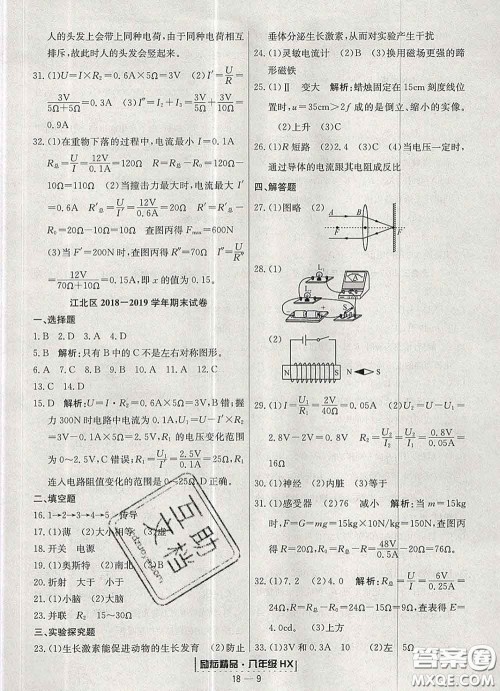 人的头发上会带上同种电荷,由于同种电荷相互
排斥,故此时人的头发会竖起来。
31.(1)U=I×R2=0.6A×5Ω=3V (2)I'=U/R=
3V/(5Ω+5Ω)=0.3A (3)I总=I2+I3=0.6A+3V/10Ω=
0.9A
32.(1)在重物下落的过程中,电流最小 I=0.1A
R总=U/I=12V/0.1A=120Ω R=R总-R0=120Ω
-10Ω=110Ω (2)当撞击力最大时,电流最大
R'总=U/I'=
R0=70Ω-10Ω=60Ω 查图丙得Fmax=600N
(3)当F=200N时,查图丙得R''=70Ω I''=U/R''总=
12V/(70Ω+10Ω)=0.15A,即x的值为0.15。
江北区2018—2019学年期末试卷
一、选择题
1.B 2.D 3.A 4.D
5.B 解析:只有B中的C不是左右对称图形。
6.A 7.C 8.A 9.B 10.B 11.C 12.A
13.C 14.D
15.D 解析:U=I·R2=0.6A×5Ω=3V,B错;握
力300N时电路中电流为0.1A,U1=U-U2
=3V-0.1A×5Ω=2.5V,R1的电压变化范围
为0~2.5V,C错误;R1=U1/I=2.5V/0.1A=25Ω,
连入电路阻值变化的范围是0~25Ω,D正确。
二、填空题
16.1→2→3→4→5 传导
17.(1)薄 (2)大小相等
18.开关 电源
19.(1)奥斯特 (2)南
20.折射 大于 小
21.(1)小脑 (2)大脑
23.并联 R2 15~30Ω
三、实验探究题
23.(1)生长激素能促进动物的生长发育 (2)防止
垂体分泌生长激素,从而对实验产生干扰
24.(1)灵敏电流计 (2) (3)换用磁场更强的蹄
形磁铁
25.(1)Ⅱ 变大 解析:蜡烛固定在15cm刻度线位
置时,u=35cm>2f 成的是倒立、缩小的实像。
(2)上升 (3)C
26.(1)R短路 (2)2.4 (3)C (4)当电压一定时,
通过导体的电流跟其电阻成反比
四、解答题
27.(1)图略 (2)
F
28.(1)
(2)
N S N S
29.(1)I=U1/R1=2V/40Ω=0.05A (2)U2=U-U1=
2.8V-2V=0.8V R2=U2/I=0.8V/0.05A=16Ω
30.(1)神经 (2)内脏 (3)等于
31.(1)感受器 (2)76 减小 解析:当m=15kg
时,F=G=mg=15kg×10N/kg=150N,查图
得R=20Ω,R0=R总-R=48V/0.5A-20Ω=76Ω
32.(1)7.2 (2)4.0 解析:R总=U/I=12V/0.3A=
40Ω,R=R总-R0=40Ω-10Ω=30Ω,查图得E=
4.0cd。 (3)上方
33.(1)10Ω 0.2A (2)右 (3)0~5Ω 5Ω
互助文档
励耘精品·八年级HX
18—9
答案圈
MXQE.COM